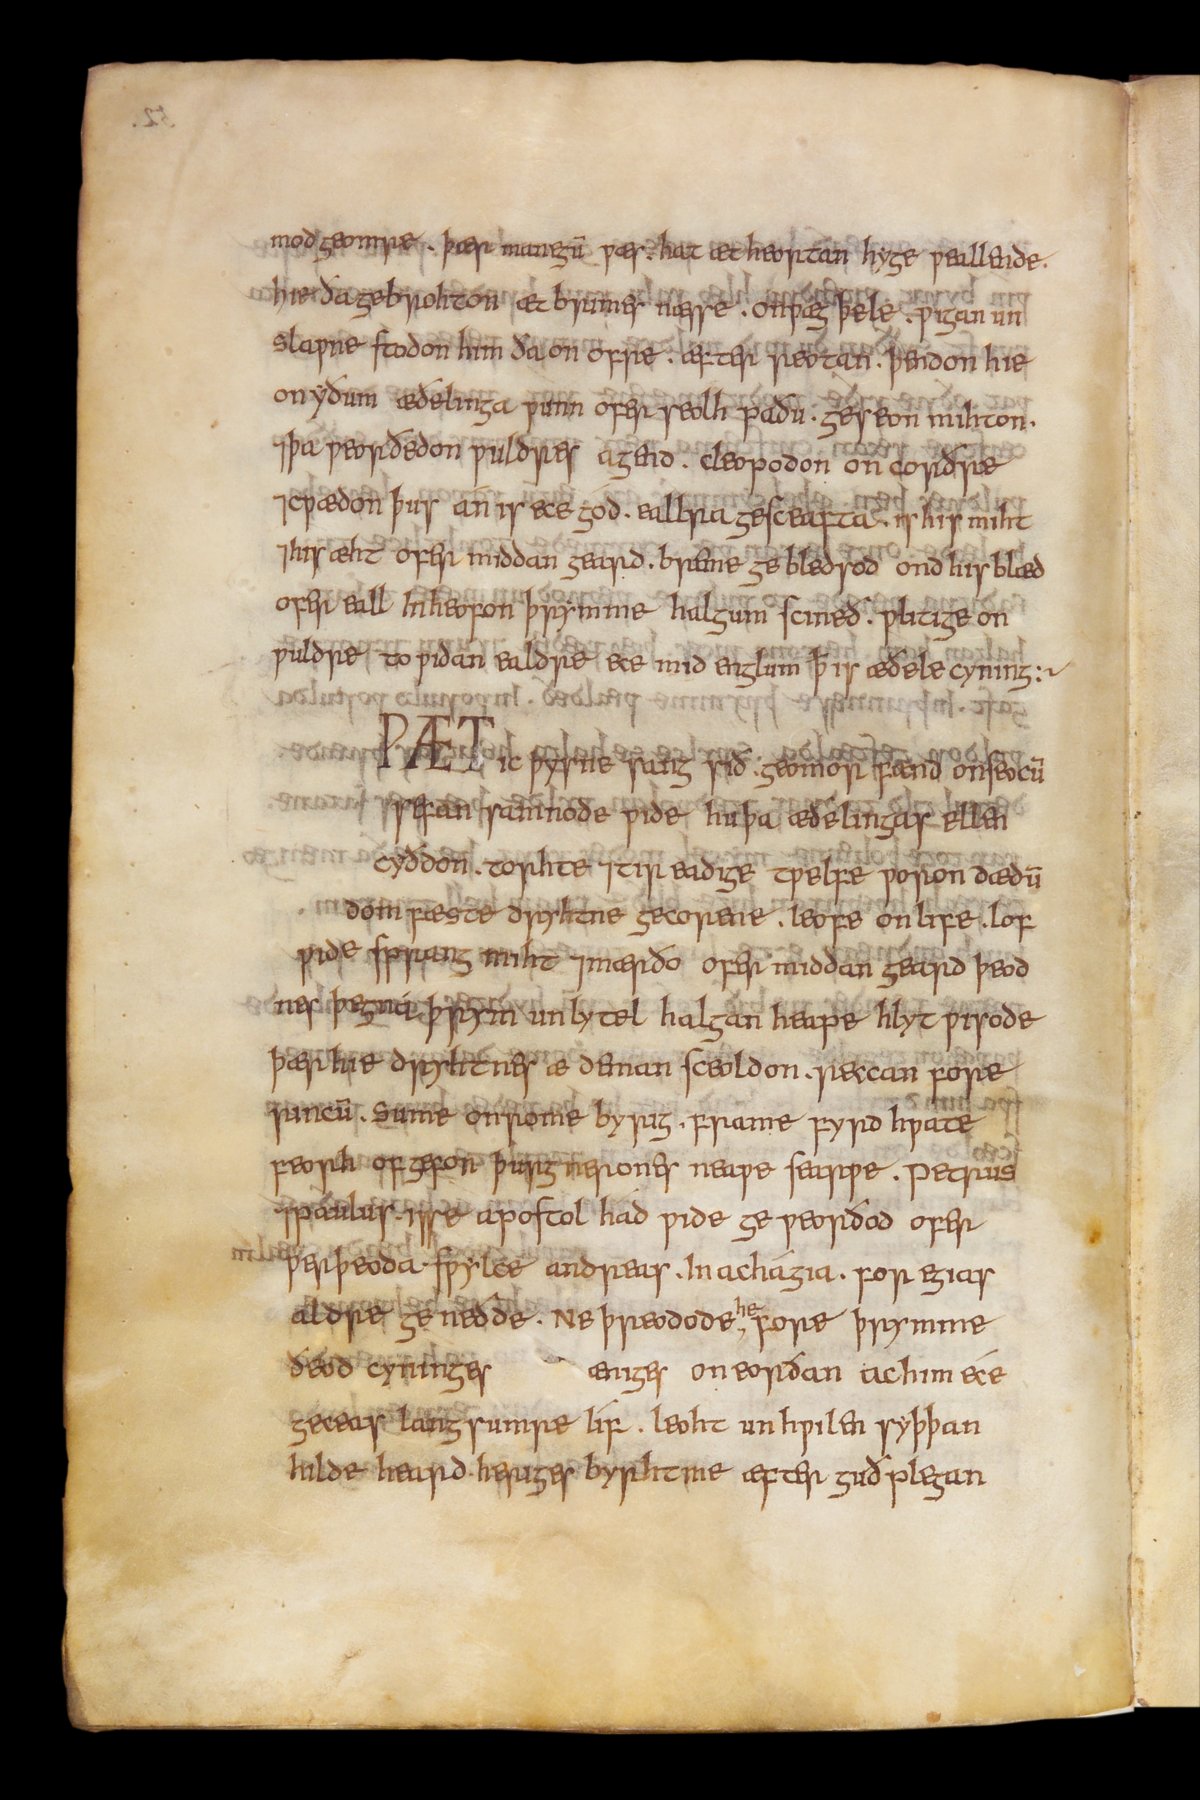 modgeomre . þær manegū ƿæs . hat æt heortan hyge ƿeallende .
hie ða gebrohton æt brimes næsse . on ƿæg þele . ƿigan un
slaƿne stodon him ða on ofre . æfter reotan . þendon hie
on yðum æðelinga ƿunn ofer seolh ƿaðu . geseon mihton .
⁊þa ƿeorðedon ƿuldres agend . cleopodon on corðre
⁊cƿædon þus án is ece god . eallra gesceafta . is his miht
⁊his æht ofer middan geard . breme gebledsod ond his blæd
ofer eall in heofon þrymme halgum scineð . ƿlitige on
ƿuldre to ƿidan ealdre ece mid englum ꝥ is æðele cyning :~
ǷÆT ic þysne sang sið . geomor fand on seocū
sefan samnode ƿide hu þa æðelingas ellen
cyðdon . torhte ⁊tir eadige tƿelfe ƿoron dædū
domfæste dryhtne gecorene . leofe on life . lof
ƿide sprang miht ⁊mærðo ofer middan geard þeod
nes þegna þrym unlytel halgan heape hlyt ƿisode
þær hie dryhtnes æ deman sceoldon . reccan fore
rincū . Sume on rome byrig . frame fyrd hƿate
feorh ofgefon þurg nerones neaƿe searƿe . Petrus
⁊paulus . is se apostol hád ƿide geƿeorðod ofer
ƿerþeoda . sƿylce andreas . In achágia . for egias
aldre geneðde . Ne þreodode he fore þrymme
ðeod cyninges ænges on eorðan ac him ece
geceas langsumre líf . leoht unhƿilen syþþan
hilde heard . heriges byrhtme æfter guðplegan